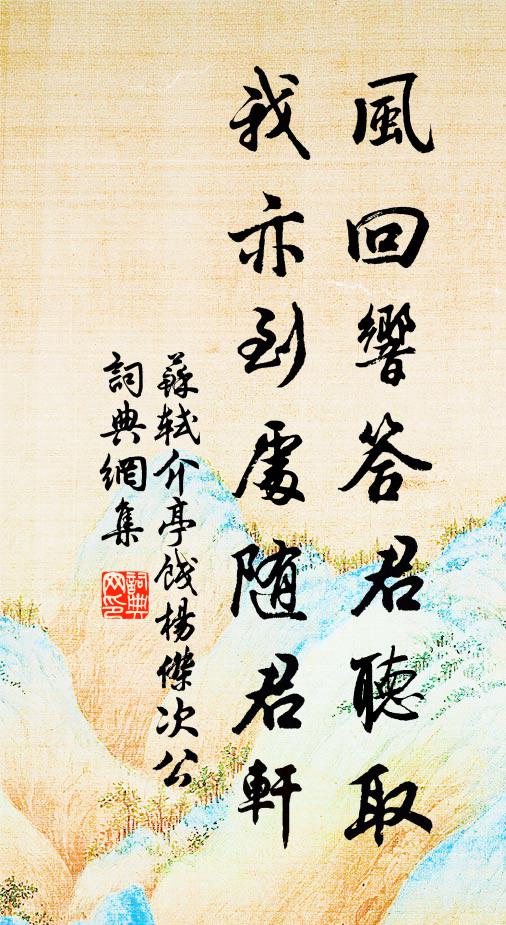 風回響答君聽取
我亦到處随君軒
蘇軾介亭餞楊傑次公
詞典網集
詞典网印